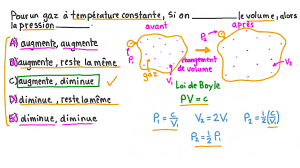 Pour un gaz à température constante, si on ________ le volume, alors
la pression ________.
avant
après
A) augmente, augmente
B) augmente, reste la même
C) augmente, diminue ✓
D) diminue, reste la même
E) diminue, diminue
P₁
gaz
V₁
changement
de volume
P₂
V₂
Loi de Boyle
PV = c
P₁ = c/V₁
V₂ = 2V₁
P₂ = ½(c/V₁)
P₂ = ½ P₁